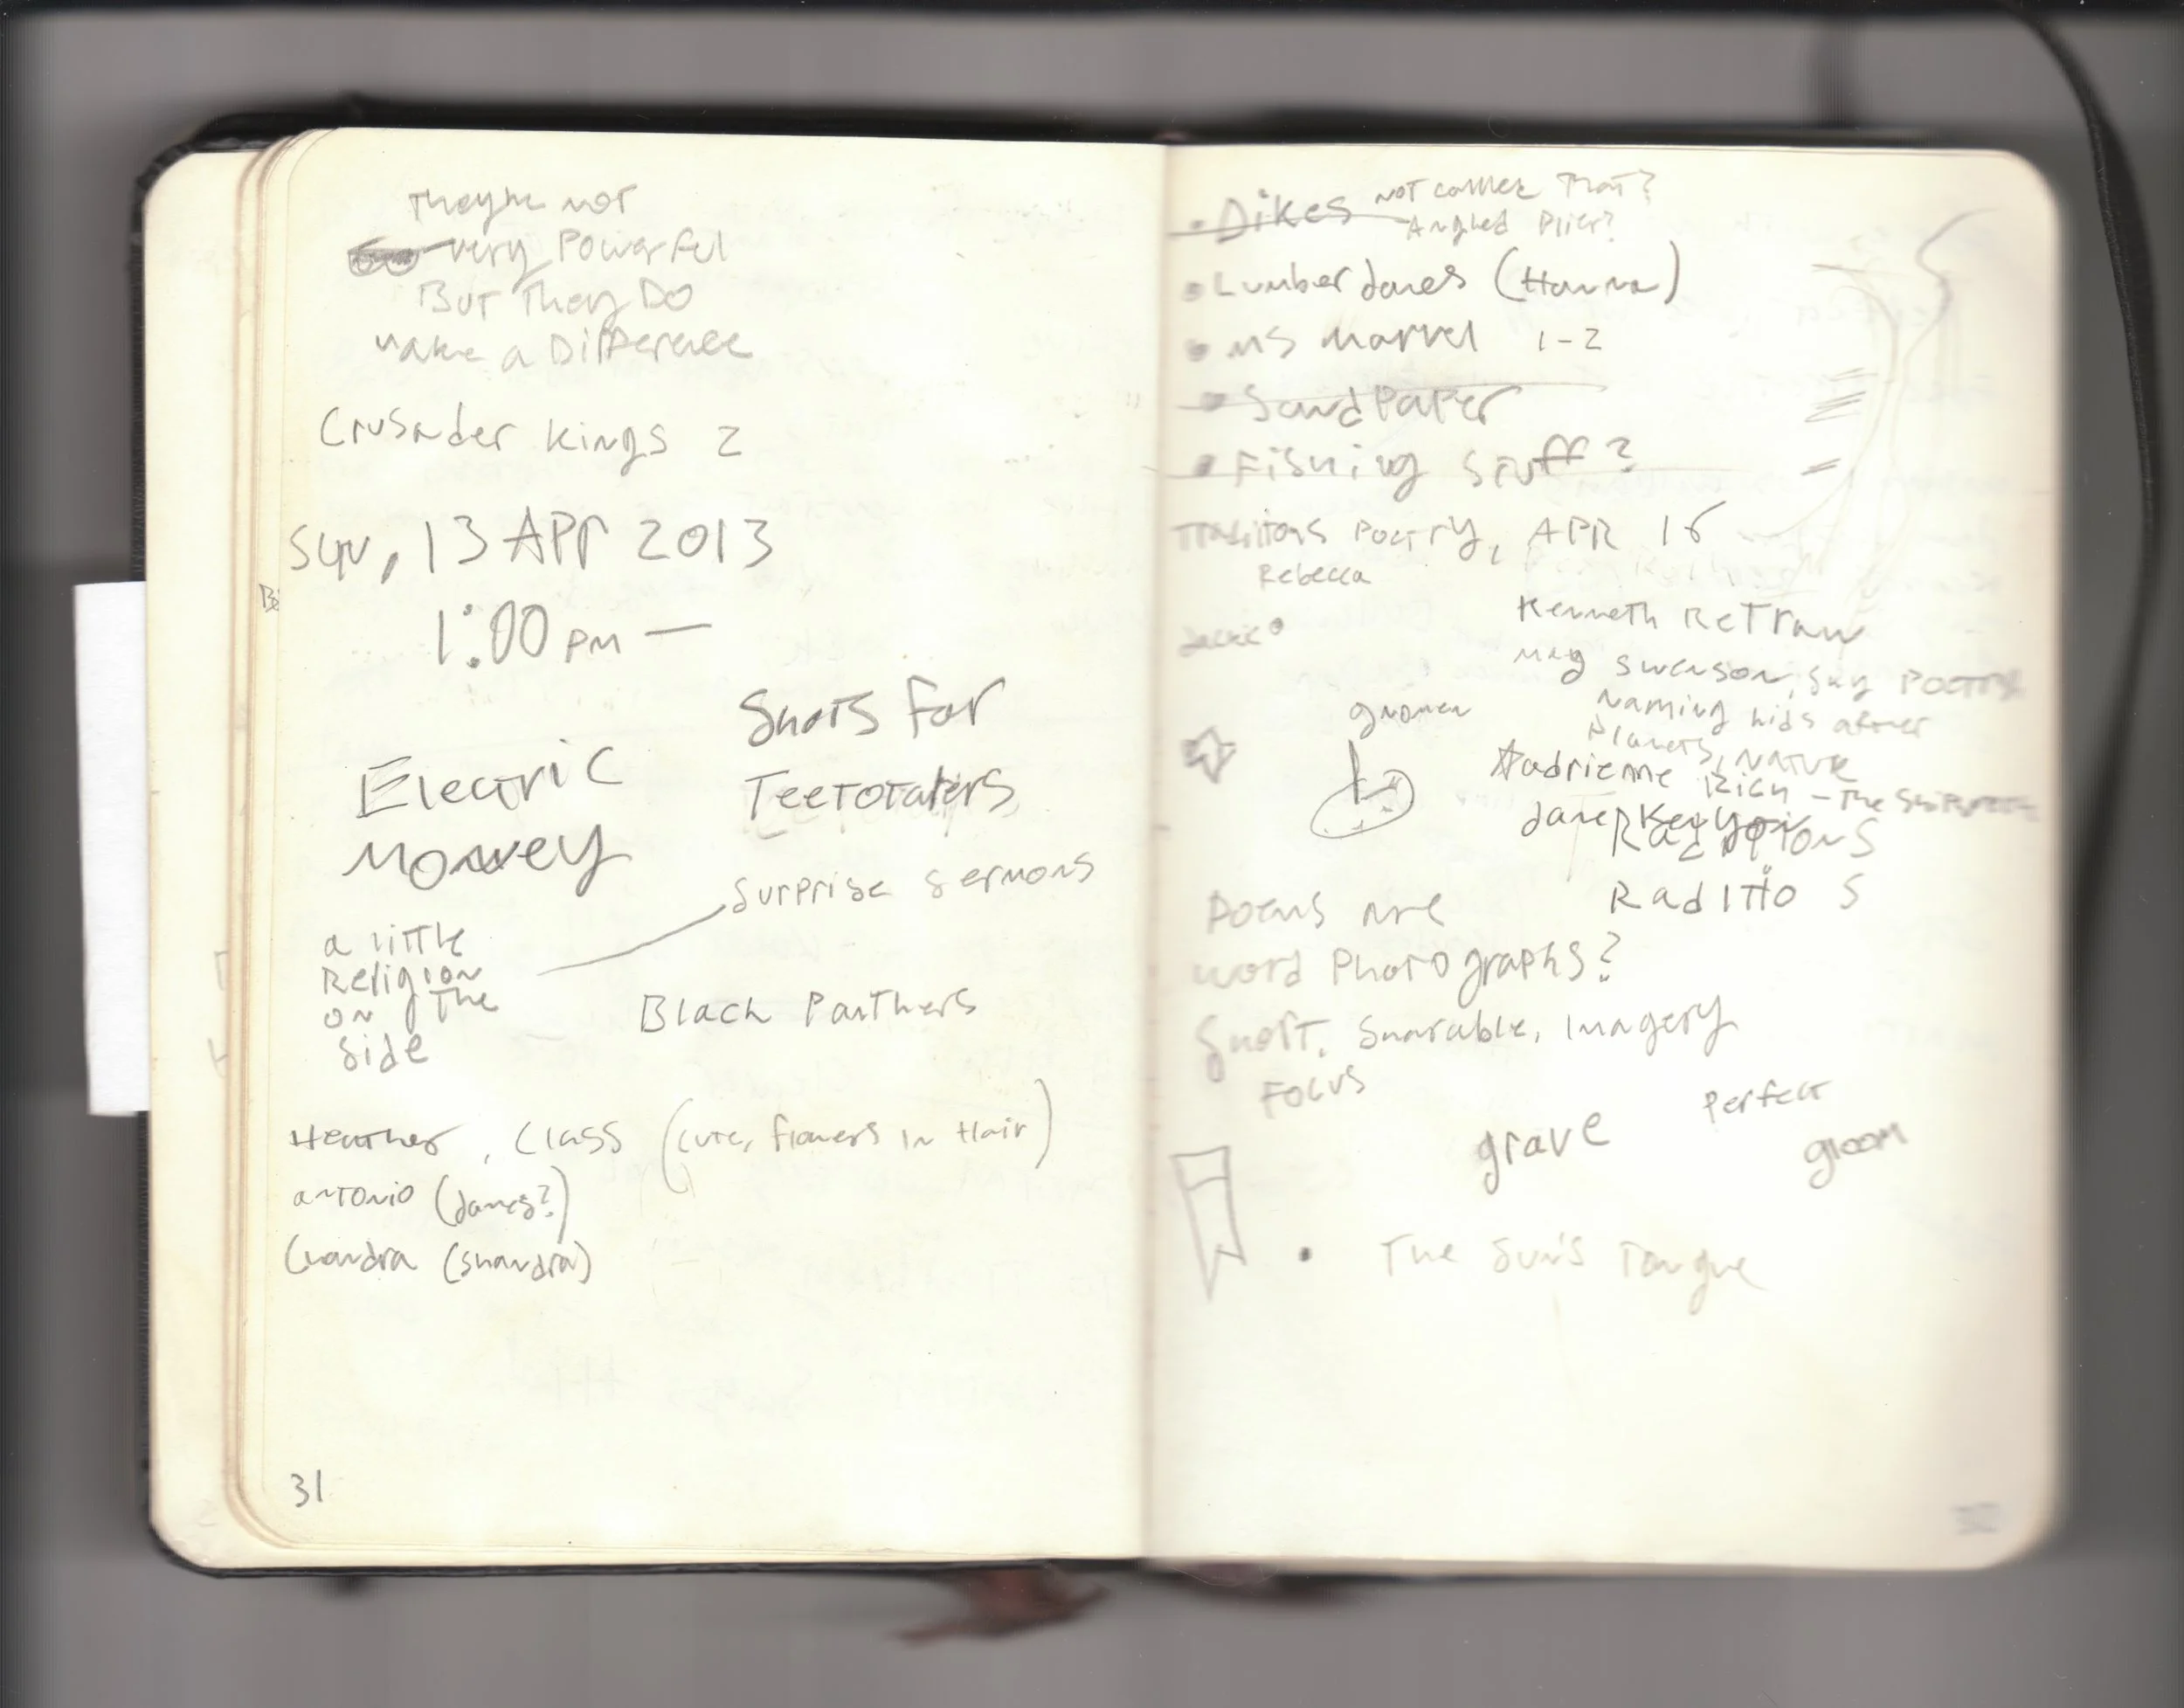 They're not
very Powerful
But They Do
make a Difference
Crusader Kings 2
Sun, 13 APr 2013
1:00 PM —
Shots for
Teetotalers
Electric
Money
Surprise Sermons
a little
Religion
on The
Side
Black Panthers
Heather, Class (cute, flowers in Hair)
antonio (James?)
Chandra (Shandra)
31
• Dikes NOT called That?
Angled Plier?
• Lumber Janes (Hanna)
• MS Marvel 1-2
• Sand Paper
• Fishing Stuff?
Poetry, APR 16
Rebecca
Jackie
Kenneth
may Swenson, Sky Poetry
Naming kids after
Planets, Nature
gnomen
adrienne Rich - The
Jane Kenyon
S
Poems are
word Photographs?
Short, Sharable, Imagery
Focus
grave
perfect
gloom
• The Sun's Tongue